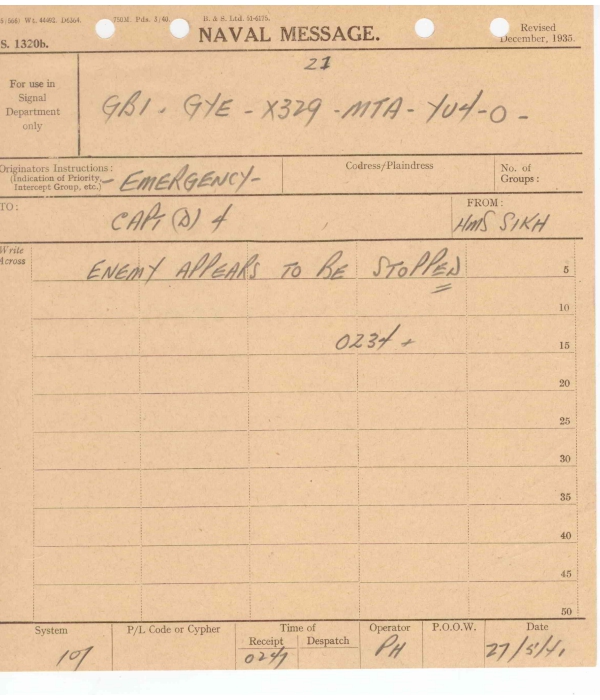 B. & S. Ltd. 51-6175.
NAVAL MESSAGE.
Revised
December, 1935.
S. 1320b.
For use in
Signal
Department
only
21
GB1 . GYE - X329 - MTA - YU4 - O -
Originators Instructions:
(Indication of Priority,
Intercept Group, etc.)
- EMERGENCY -
Codress/Plaindress
No. of
Groups:
TO:
CAPt (D) 4
FROM:
HMS SIKH
Write
Across
ENEMY APPEARS TO BE STOPPED
5
10
0234 +
15
20
25
30
35
40
45
50
System
P/L Code or Cypher
Time of
Receipt
Despatch
Operator
P.O.O.W.
Date
107
0247
PH
27/5/41